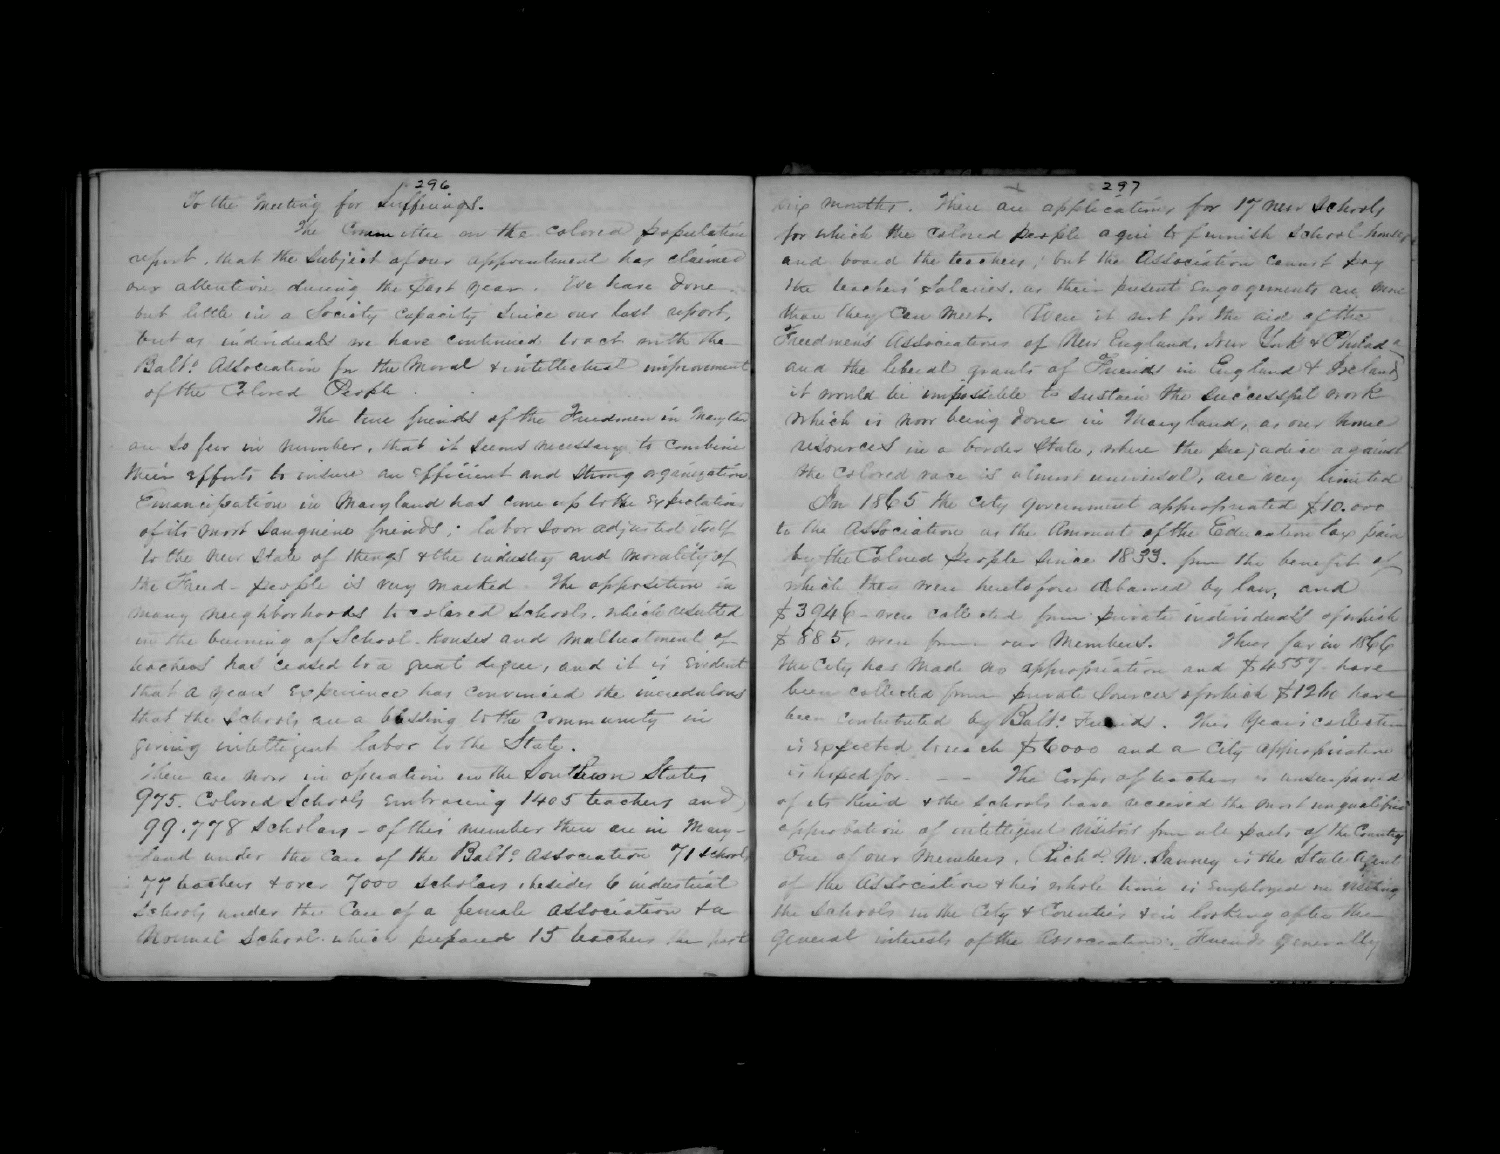 296
To the Meeting for Sufferings.
The Committee on the colored population
report, that the Subject of our appointment has claimed
our attention during the past year. We have done
but little in a Society capacity since our last report,
but as individuals we have continued to act with the
Balto. Association for the Moral & intellectual improvement
of the Colored People.
The true friends of the Freedmen in Marylan
are so few in number, that it seems necessary to combine
their efforts to insure an efficient and strong organization.
Emancipation in Maryland has come up to the expectations
of its most sanguine friends; labor soon adjusted itself
to the new State of things & the industry and morality of
the Freed-people is very marked. The opposition in
many neighborhoods to colored Schools, which resulted
in the burning of School-houses and maltreatment of
teachers has ceased to a great degree, and it is evident
that a years experience has convinced the incredulous
that the Schools are a blessing to the Community in
giving intelligent labor to the State.
There are now in operation in the Southern States
975. Colored Schools embracing 1405 teachers and
99.778 Scholars - of this number there are in Mary-
land under the Care of the Balto. Association 71 schools
77 teachers & over 7000 Scholars, besides 6 industrial
Schools under the Care of a female Association & a
Normal School. which prepared 15 teachers the past
297
six months. There are applications for 17 new Schools
for which the colored people agree to furnish School-houses
and board the teachers; but the Association cannot pay
the teachers' Salaries, as their present engagements are more
than they can meet. Were it not for the aid of the
Freedmen's Associations of New England, New York & Philada
and the liberal grants of Friends in England & Ireland
it would be impossible to sustain the successful work
which is now being done in Maryland, as our home
resources in a border State, where the prejudice against
the colored race is almost universal, are very limited
In 1865 the City government appropriated $10.000
to the Association as the Amount of the Education tax paid
by the Colored People since 1833. from the benefit of
which they were heretofore debarred by law, and
$3946 - were collected from private individuals of which
$885. were from our Members. Thus far in 1866
the City has made no appropriation and $4557 have
been collected from private Sources of which $1260 have
been contributed by Balto. Friends. This Years collection
is expected to reach $6000 and a City appropriation
is hoped for. - - The Corps of teachers is unsurpassed
of its kind & the Schools have received the most unqualified
approbation of intelligent visitors from all parts of the Country
One of our Members, Richd. M. Janney is the State Agent
of the Association & his whole time is employed in visiting
the Schools in the City & Counties & in looking after the
general interests of the Association. Friends generally